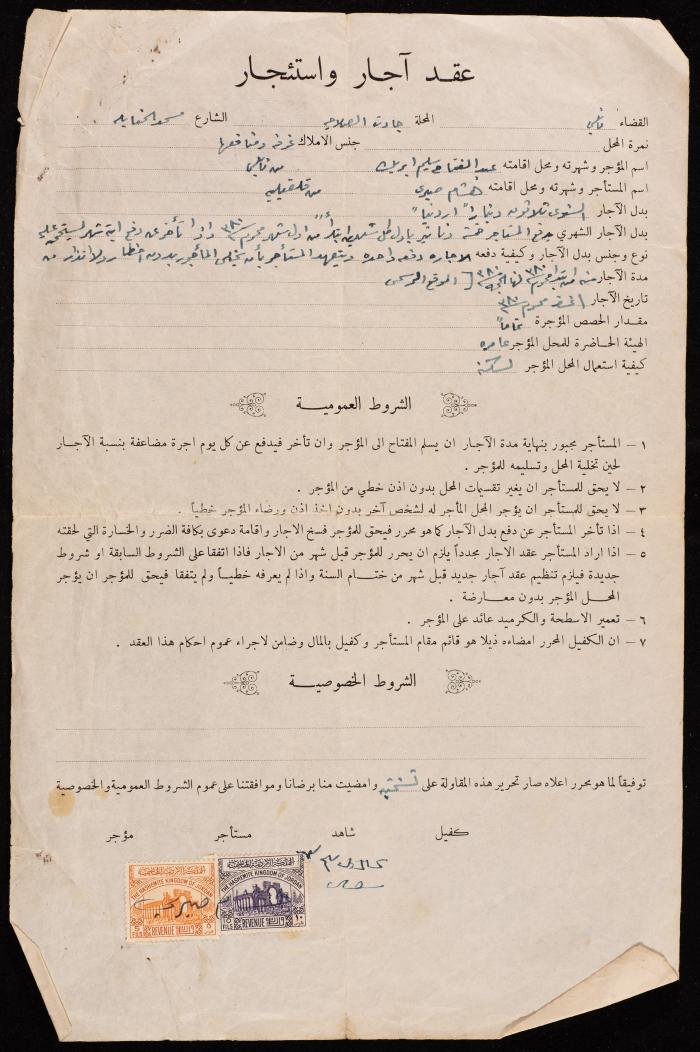 عقد آجار واستئجار
القضاء نابلس المحلة الشارع
نمرة المحل جنس الاملاك غرفة ومنافعها
اسم المؤجر وشهرته ومحل اقامته عبد الفتاح سليم من نابلس
اسم المستأجر وشهرته ومحل اقامته هشام صبري من قلقيلية
بدل الآجار السنوي ثلاثون ديناراً اردنيا
بدل الآجار الشهري يدفع المستأجر خمسة دنانير
نوع وجنس بدل الآجار وكيفية دفعه الاجارة دفعة واحدة ويتعهد المستأجر بأن يخلي المأجور بدون اخطار ولا انذار
مدة الآجار سنة
تاريخ الآجار محرم
مقدار الحصص المؤجرة تماماً
الهيئة الحاضرة للمحل المؤجر عامرة
كيفية استعمال المحل المؤجر
الشروط العمومية
١ – المستأجر مجبور بنهاية مدة الآجار ان يسلم المفتاح الى المؤجر وان تأخر فيدفع عن كل يوم اجرة مضاعفة بنسبة الآجار
لحين تخلية المحل وتسليمه للمؤجر .
٢ – لا يحق للمستأجر ان يغير تقسيمات المحل بدون اذن خطي من المؤجر .
٣ – لا يحق للمستأجر ان يؤجر المحل المأجر له لشخص آخر بدون اخذ اذن ورضاء المؤجر خطياً .
٤ – اذا تأخر المستأجر عن دفع بدل الآجار كما هو محرر فيحق للمؤجر فسخ الاجار واقامة دعوى بكافة الضرر والخسارة التي لحقته
٥ – اذا اراد المستأجر عقد الاجار مجدداً يلزم ان يحرر للمؤجر قبل شهر من الاجار فاذا اتفقا على الشروط السابقة او شروط
جديدة فيلزم تنظيم عقد آجار جديد قبل شهر من ختام السنة واذا لم يعرفه خطياً ولم يتفقا فيحق للمؤجر ان يؤجر
المحل المؤجر بدون معارضة .
٦ – تعمير الاسطحة والكرميد عائد على المؤجر .
٧ – ان الكفيل المحرر امضاءه ذيلا هو قائم مقام المستأجر وكفيل بالمال وضامن لاجراء عموم احكام هذا العقد .
الشروط الخصوصية
توفيقاً لما هو محرر اعلاه صار تحرير هذه المقاولة على نسختين وامضيت منا برضانا وموافقتنا على عموم الشروط العمومية والخصوصية
كفيل شاهد مستأجر مؤجر
المملكة الاردنية الهاشمية
THE HASHEMITE KINGDOM OF JORDAN
10 FILS REVENUE
المملكة الاردنية الهاشمية
THE HASHEMITE KINGDOM OF JORDAN
5 FILS REVENUE